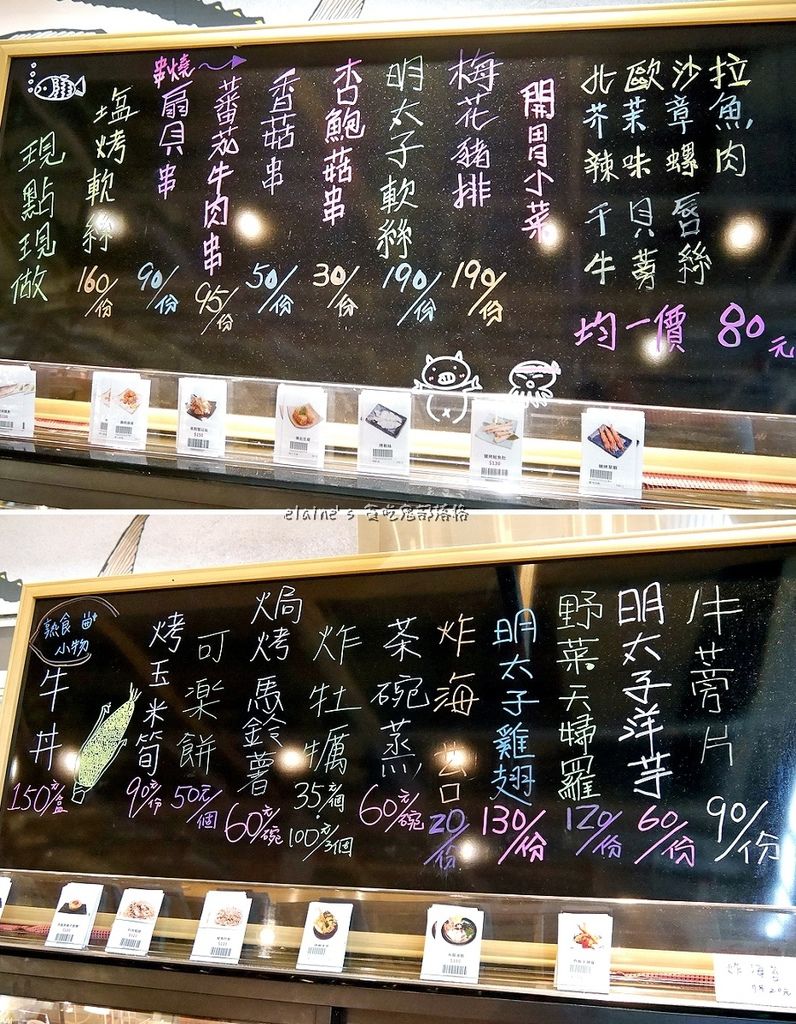 現點現做
塩烤軟絲
160/份
串燒
扇貝串
90/份
蕃茄牛肉串
95/份
香菇串
50/份
杏鮑菇串
30/份
明太子軟絲
190/份
梅花豬排
190/份
開胃小菜
北歐沙拉
芥茉章魚
辣味螺肉
干貝唇
牛蒡絲
均一價 80元
elaine's 貪吃鬼部落格
熟食
小物
牛丼
150元/盒
烤玉米筍
90元/份
可樂餅
50元/個
焗烤馬鈴薯
60元/碗
炸牡蠣
35元/個
100元/3個
茶碗蒸
60元/碗
炸海苔
20/份
明太子雞翅
130/份
野菜天婦羅
120/份
明太子洋芋
60/份
牛蒡片
90/份
炸海苔